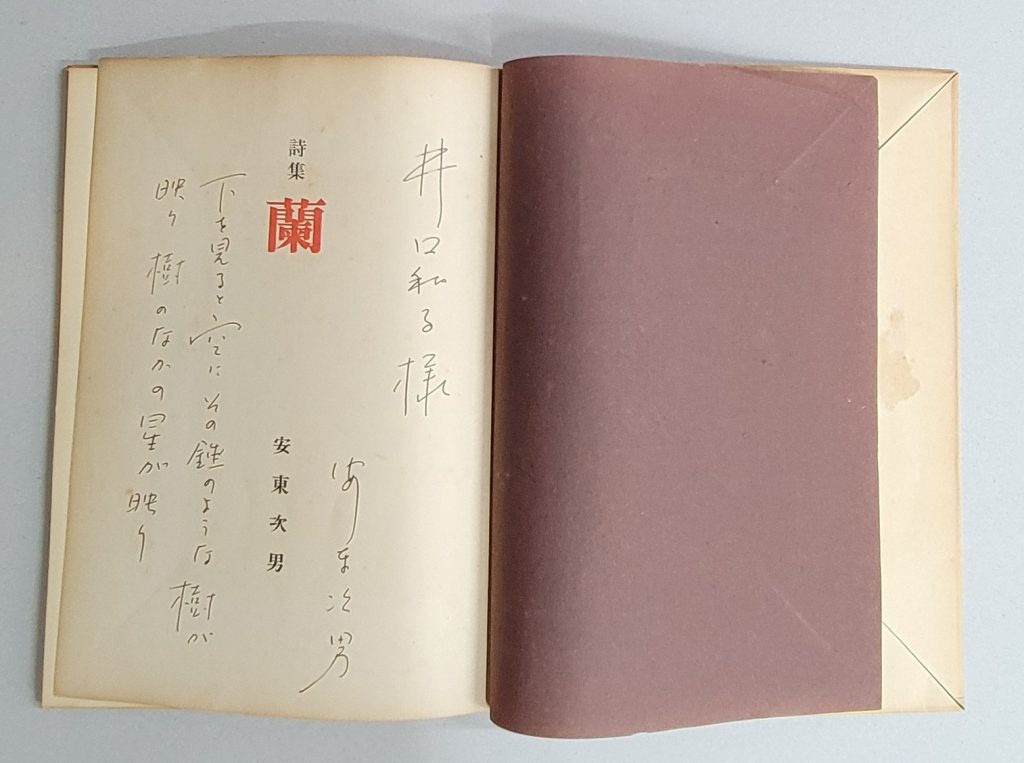 井口和子様
安東次男
詩集 蘭
安東次男
下を見ると空にその錘のような樹が
映り 樹のなかの星が映り